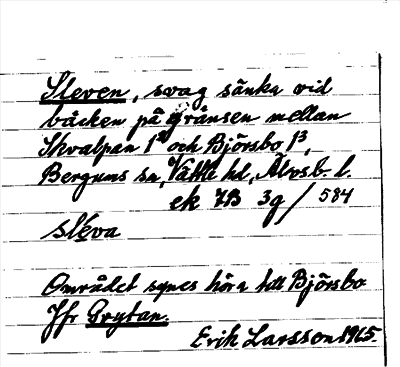 Sleven, svag sänka vid
bäcken på gränsen mellan
Skvalpan 1² och Björsbo 1³,
Bergums sn, Vättle hd, Älvsb. l.
ek 7B 3g/584
sle̱va
Området synes höra till Björsbo
Jfr Grytan.
Erik Larsson 1965.